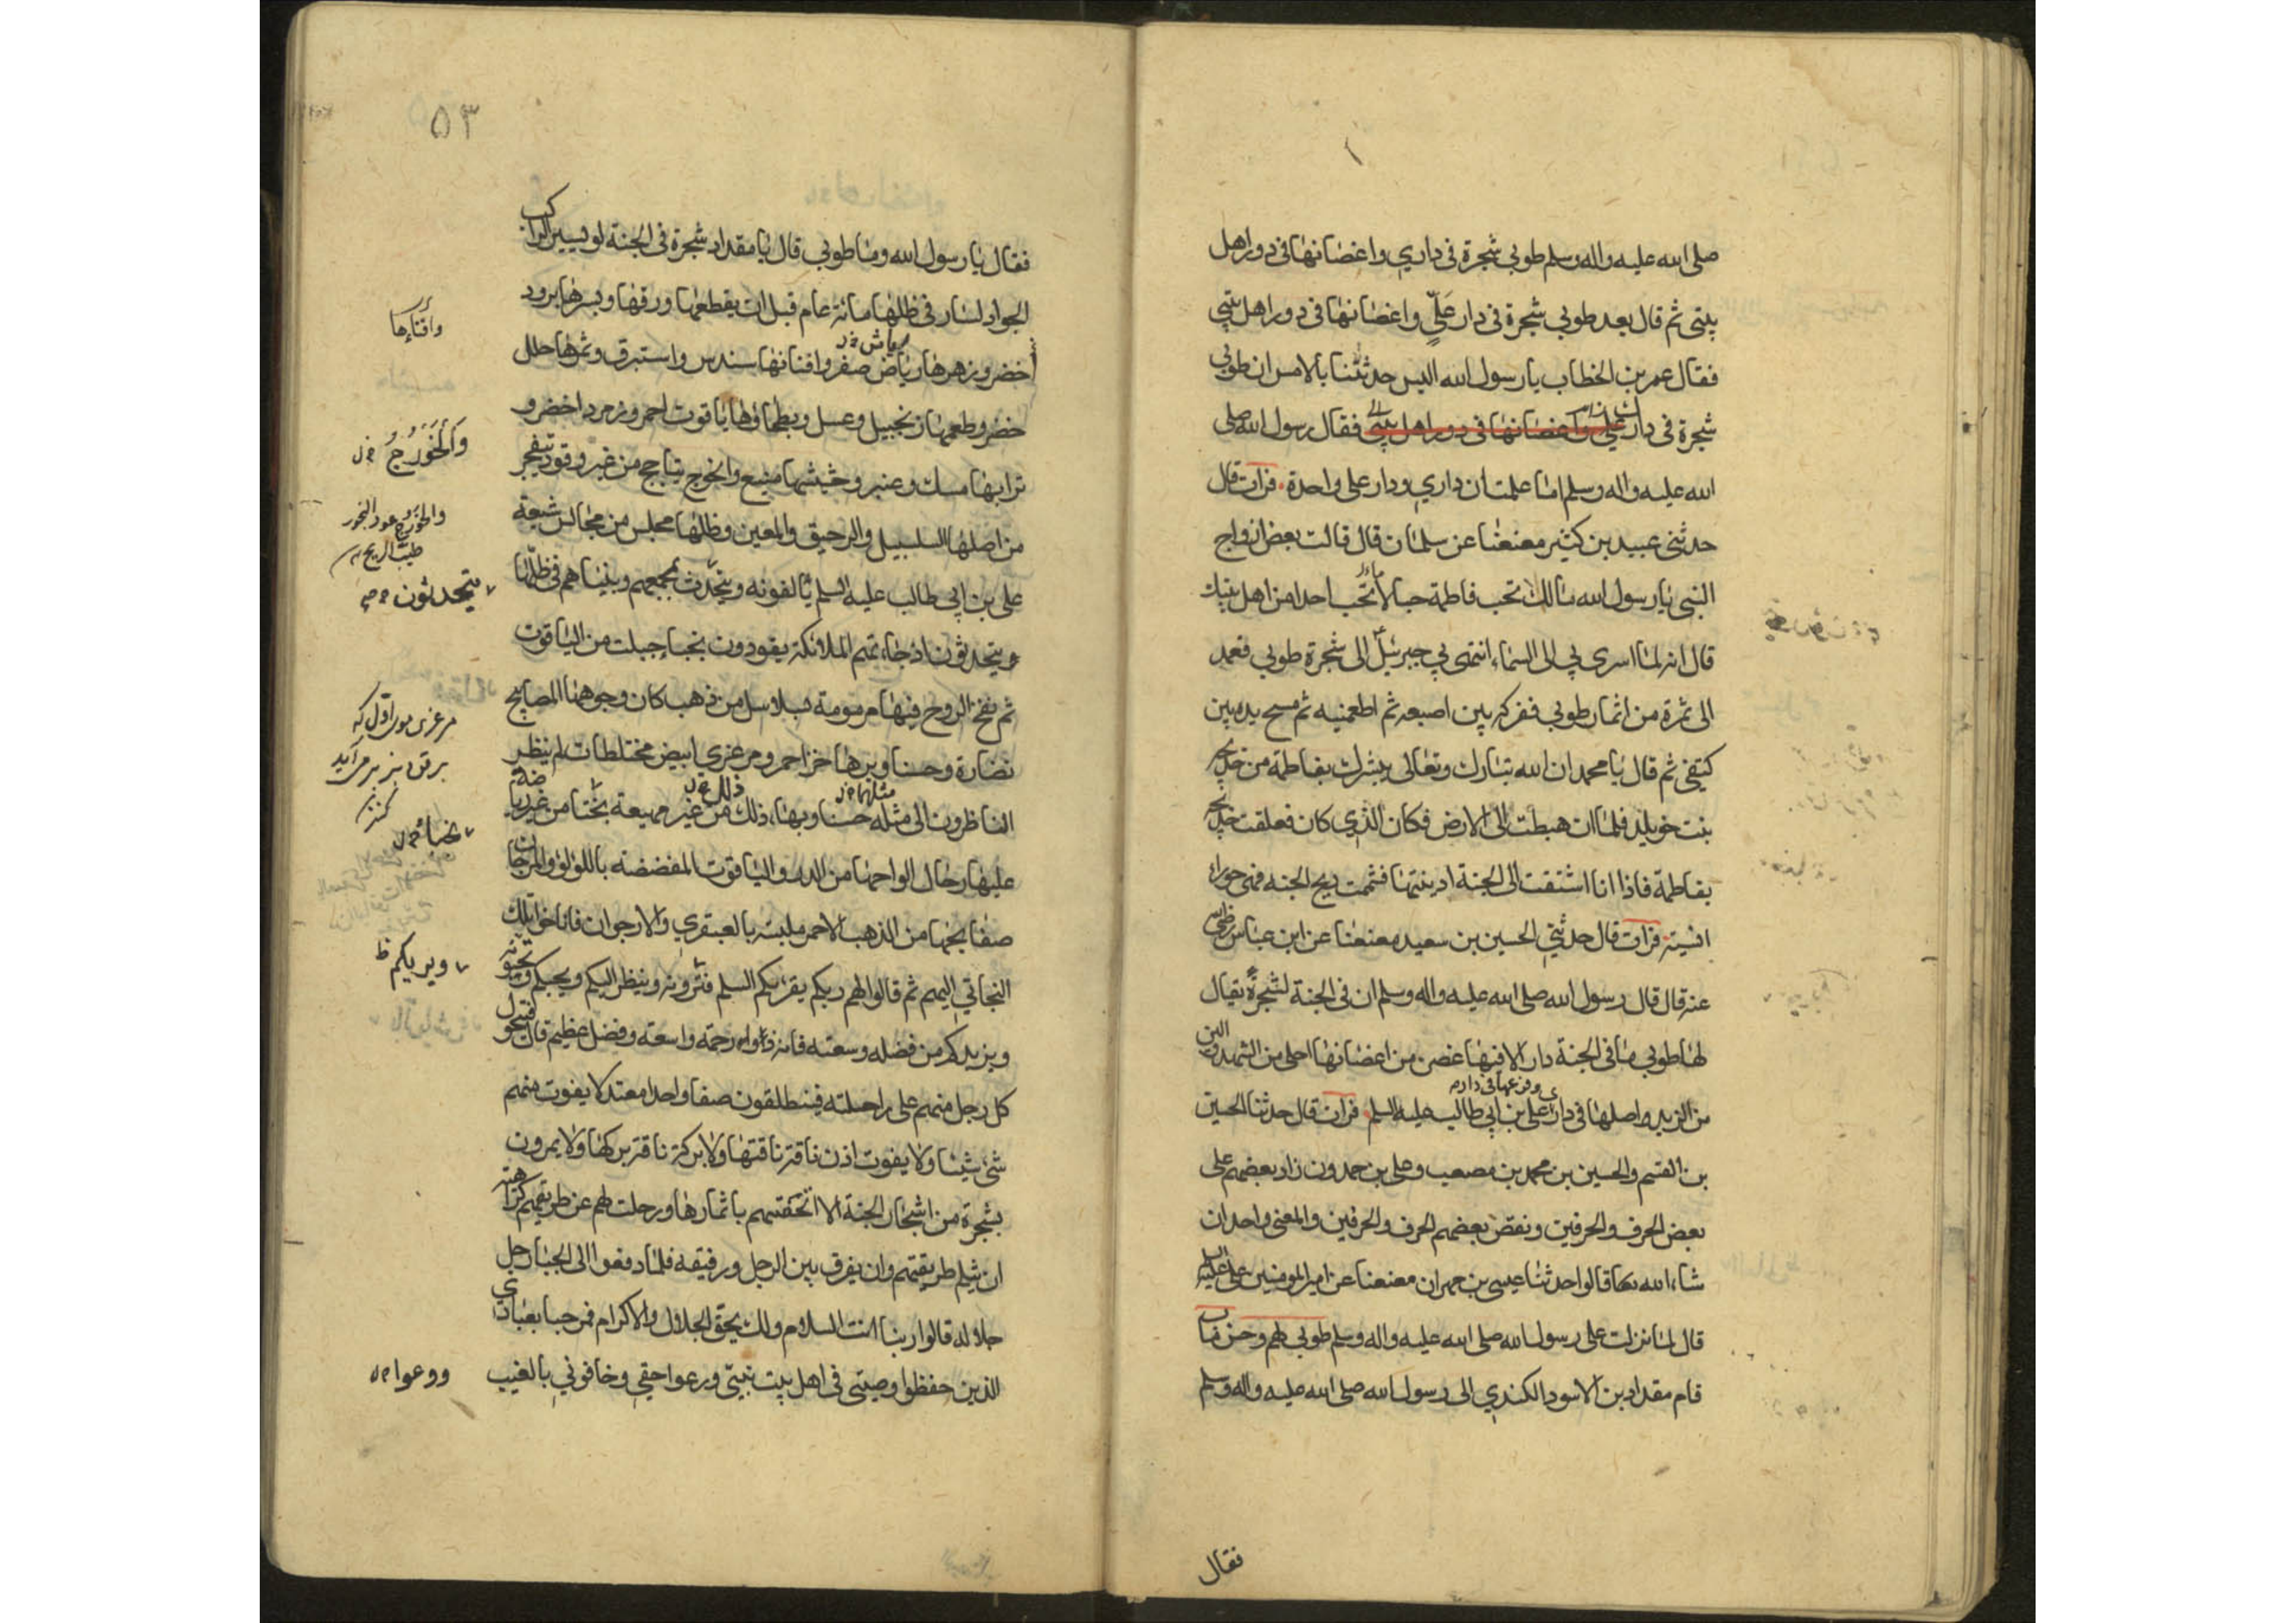 صلى الله عليه واله وسلم طوبي شجرة في داري واغصانها في دور اهل
بيتي ثم قال بعد طوبي شجرة في دار عليّ واغصانها في دور اهل بيتي
فقال عمر بن الخطاب يا رسول الله اليس حدثتنا بالامس ان طوبي
شجرة في دارك واغصانها في دور اهل بيتي فقال رسول الله صلى
الله عليه واله وسلم اما علمت ان داري ودار على واحدة فرات قال
حدثني عبيد بن كثير معنعنا عن سلمان قال قالت بعض ازواج
النبي يا رسول الله مالك تحب فاطمة حبا لا تحب احدا من اهل بيتك
قال انه لما اسري بي الى السماء انتهى بي جبرئيل الى شجرة طوبي فعمد
الى ثمرة من اثمار طوبي ففركه بين اصبعه ثم اطعمنيه ثم مسح يده بين
كتفي ثم قال يا محمد ان الله تبارك وتعالى يبشرك بفاطمة من خديجة
بنت خويلد فلما ان هبطت الى الارض فكان الذي كان فعلقت خديجة
بفاطمة فاذا انا اشتقت الى الجنة ادنيتها فشممت ريح الجنه فهى حوراء
انسيته فرات قال حدثني الحسين بن سعيد معنعنا عن ابن عباس رضي الله
عنه قال قال رسول الله صلى الله عليه واله وسلم ان في الجنة لشجرة يقال
لها طوبي ما في الجنة دار الا فيها غصن من اغصانها احلى من الشهد والين
من الزبد واصلها في دار علي بن ابي طالب عليه السلم فرات قال حدثنا الحسين
وفرعها في دار
بن القسم والحسين بن محمد بن مصعب وعلي بن حمدون زاد بعضهم على
بعض الحرف والحرفين ونقص بعضهم الحرف والحرفين والمعنى واحد ان
شاء الله قالوا حدثنا عيسى بن مهران معنعنا عن امير المومنين على عليه السلم
قال لما نزلت على رسول الله صلى الله عليه واله وسلم طوبي لهم وحسن ماب
قام مقداد بن الاسود الكندي الى رسول الله صلى الله عليه واله وسلم
فقال
٥٣
فقال يا رسول الله وما طوبي قال يا مقداد شجرة في الجنة لو يسير الراكب
الجواد لسار في ظلها مائة عام قبل ان يقطعها ورقها وبسرها برود
وافناءها
خضر وزهرها رياض صفر وافنانها سندس واستبرق وثمرها حلل
خضر وطعمها زنجبيل وعسل وبطحاؤها ياقوت احمر وزمرد اخضر و
ترابها مسك وعنبر وحشيشها منيع والخوج يتاجج من غير وقود يتفجر
من اصلها السلسبيل والرحيق والمعين وظلها مجلس من مجالس شيعة
على بن ابي طالب عليه السلم يالفونه ويتحدث بجمعهم وبينا هم في ظلها
يتحدثون
يتحدثون اذ جاءتهم الملائكة يقودون نجبا جبلت من الياقوت
ثم نفخ الروح فيها مزمومة بسلاسل من ذهب كان وجوهها المصابيح
نضارة وحسنا وبرها خز احمر ومرعزي ابيض مختلطات لم ينظر
الناظرون الى مثله حسنا وبهاء ذلك من غير مهيعة نجبا من غير رياضة
عليها رحال الواحها من الدر والياقوت المفضضه باللؤلؤ والمرجان
صفايحها من الذهب الاحمر ملبسه بالعبقري والارجوان فاناخوا تلك
ويريكم ظ
النجاتي اليهم ثم قالوا لهم ربكم يقرئكم السلم فترونه وينظر اليكم ويحبكم وتحبونه
ويزيدكم من فضله وسعته فانه ذو رحمة واسعة وفضل عظيم قال فيتحول
كل رجل منهم على راحلته فينطلقون صفا واحدا معتدلا يفوت منهم
شئ شيئا ولا يفوت اذن ناقة ناقتها ولا بركة ناقة بركها ولا يمرون
بشجرة من اشجار الجنة الا اتحفتهم باثمارها ورحلت لهم عن طريقهم كراهة
ان يثلم طريقتهم وان يفرق بين الرجل ورفيقه فلما دفعوا الى الجبار جل
جلاله قالوا ربنا انت السلام ولك يحق الجلال والاكرام فمرحبا بعبادي
الذين حفظوا وصيتي في اهل بيت نبيّي ورعوا حقي وخافوني بالغيب